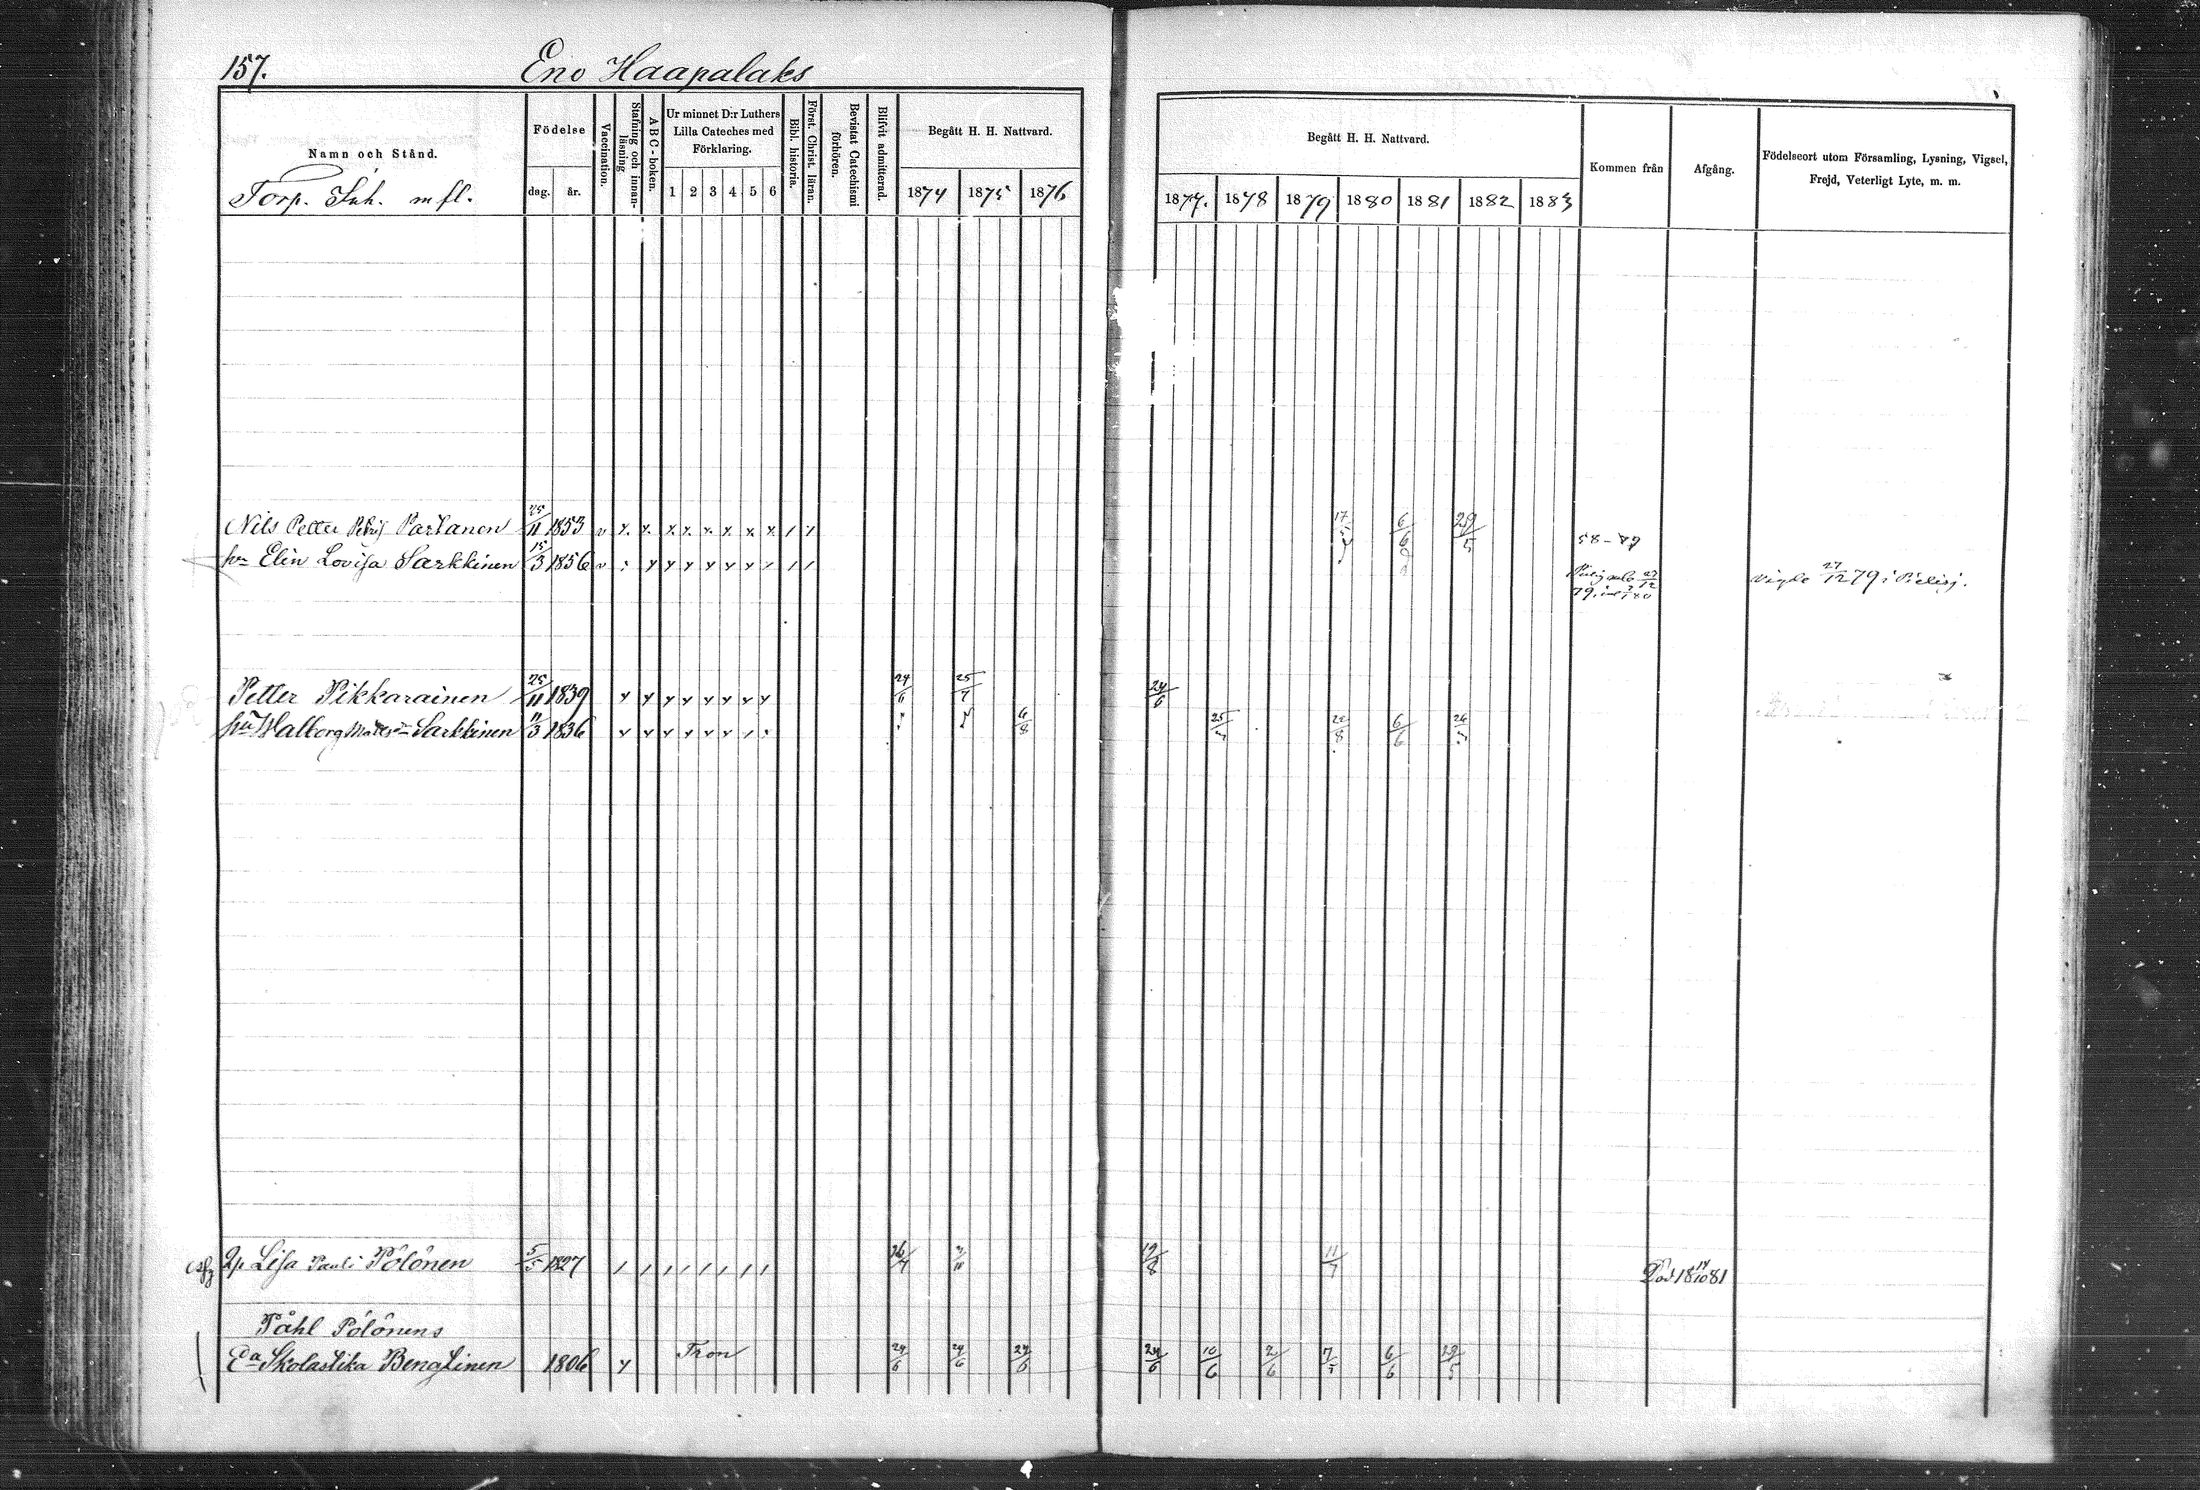 157. Eno Haapalaks
Namn och Stånd.
Torp. Inh. m fl.
Födelse
dag. år.
Vaccination.
Stafning och innan-läsning
A B C-boken.
Ur minnet D:r Luthers Lilla Cateches med Förklaring.
1 2 3 4 5 6
Bibl. historia.
Först. Christ. läran.
Bevistat Catechismi förhören.
Blifvit admitterad.
Begått H. H. Nattvard.
1874 1875 1876
Begått H. H. Nattvard.
1877. 1878 1879 1880 1881 1882 1883
Kommen från
Afgång.
Födelseort utom Församling, Lysning, Vigsel, Frejd, Veterligt Lyte, m. m.
Nils Petter Petrif Partanen 25/11 1853 v x x x x x x x x / / 17/5 6/6 29/5 58-77
hu Elin Lovisa Sarkkinen 15/3 1856 v 27/12 79, vigde 27/12 79 i Pielisj.
Petter Pikkarainen 25/11 1839 24/6 25/7 24/6
hu Walborg Sarkkinen 11/3 1836 6/8 25/5 22/8 6/6 26/5
Lisa Pauli Pölönen 5/5 1827 / / / / / / / / 26/7 19/8 11/7 Död 18 14/10 81
Påhl Pölönens
Ea Skolastika Bengtinen 1806 Tron 24/6 24/6 24/6 24/6 10/6 2/6 7/5 6/6 29/5